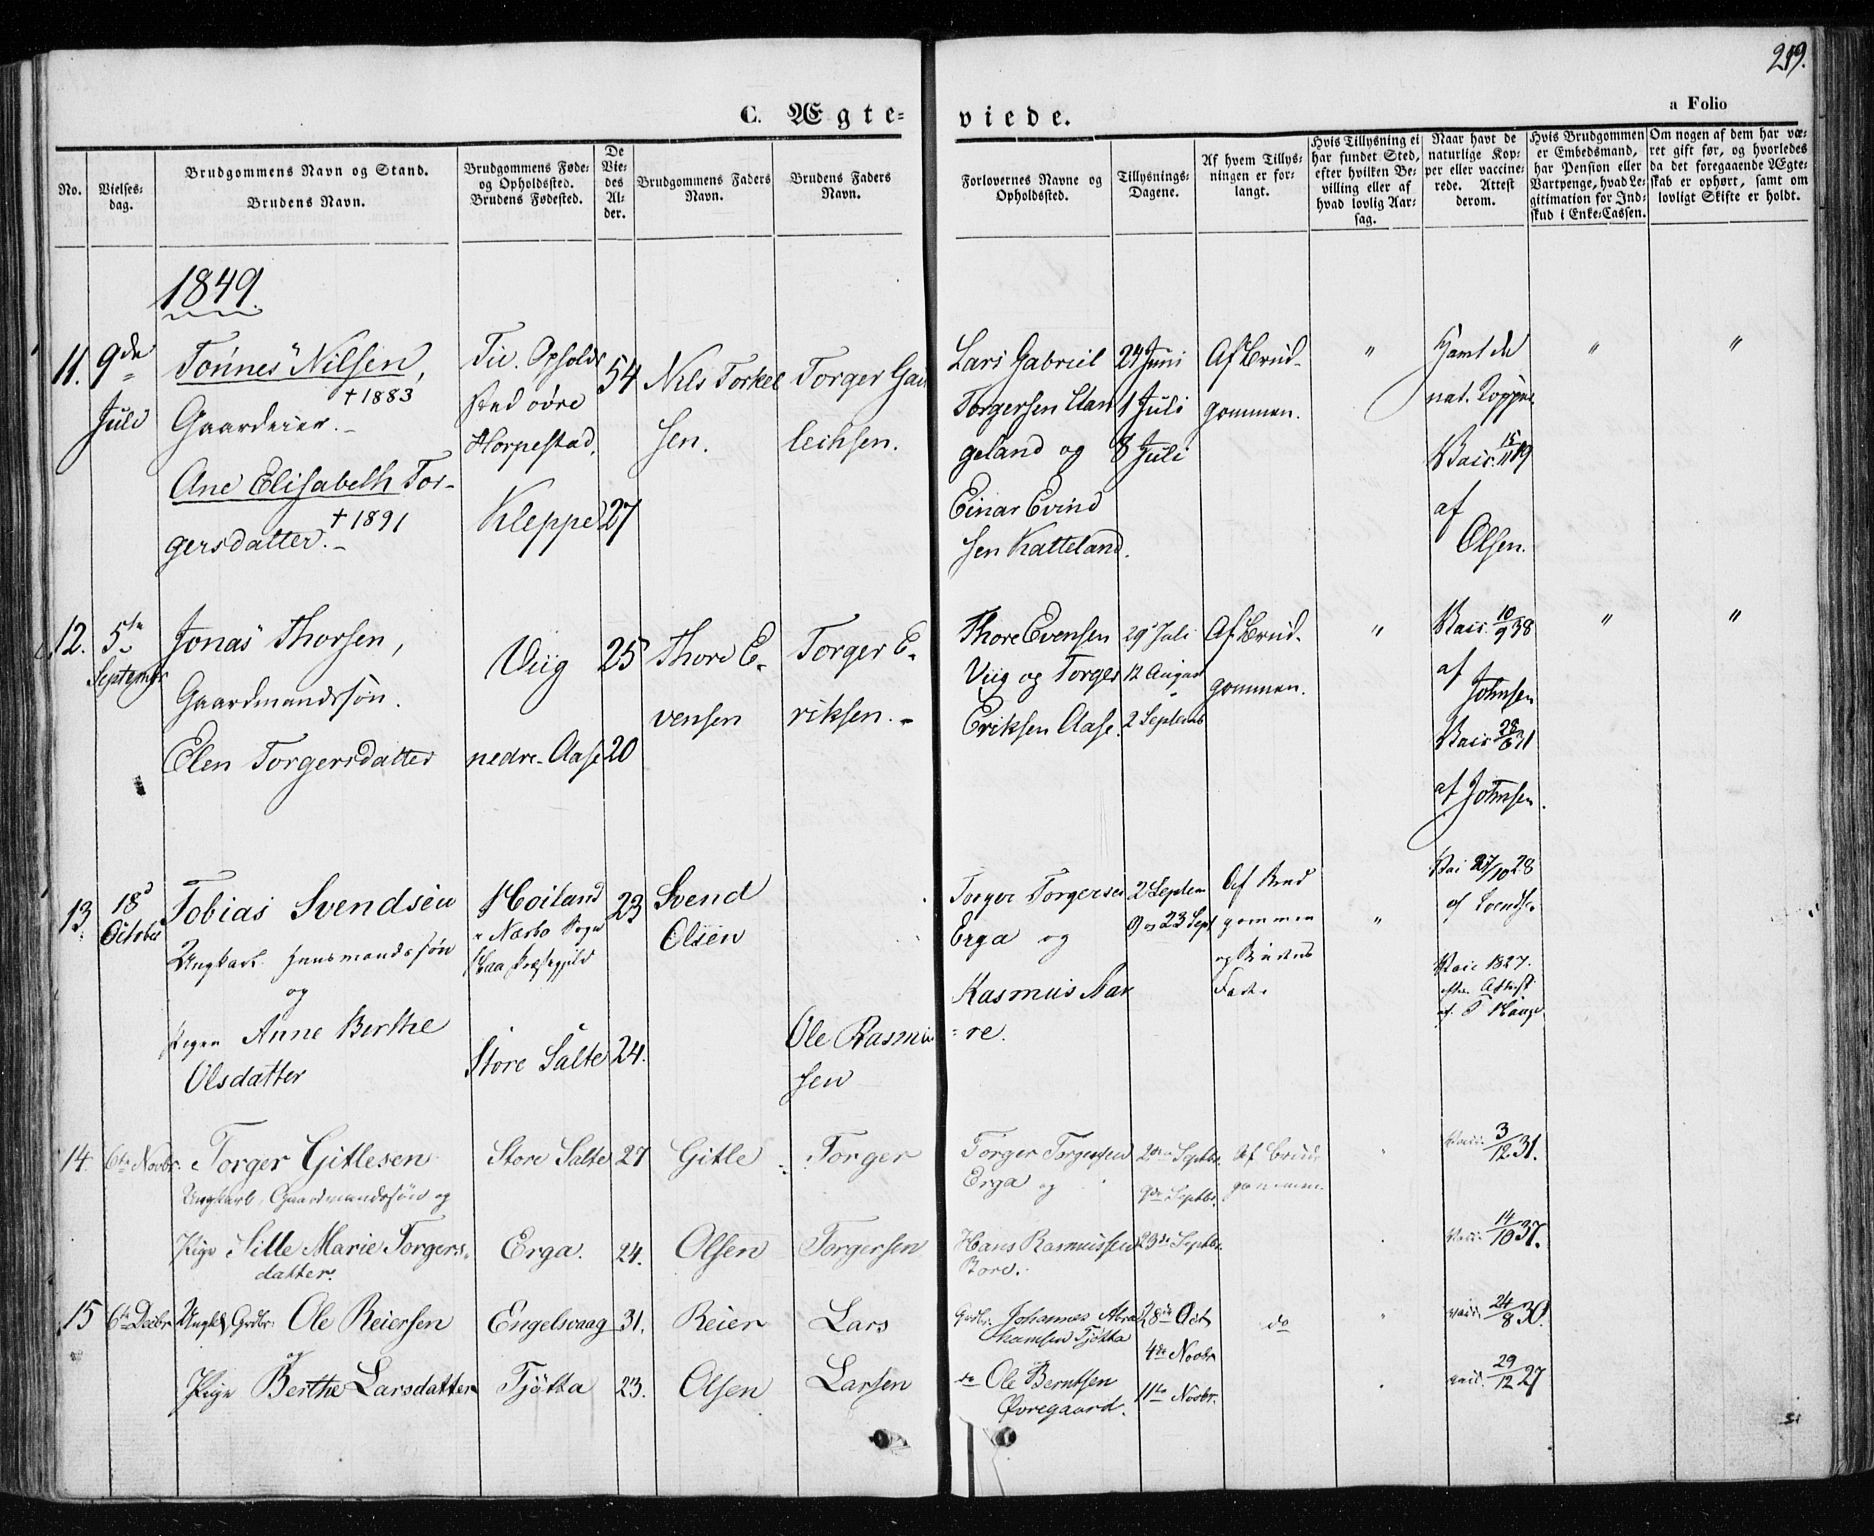 219.
C. Ægte-
viede.
a Folio
No.
Vielses-
dag.
Brudgommens Navn og Stand.
Brudens Navn.
Brudgommens Føde-
og Opholdssted.
Brudens Fødested.
De
Vie-
des
Al-
der.
Brudgommens Faders
Navn.
Brudens Faders
Navn.
Forlovernes Navne og
Opholdssted.
Tillysnings-
Dagene.
Af hvem Tillys-
ningen er for-
langt.
Hvis Tillysning ei
har fundet Sted,
efter hvilken Be-
villing eller af
hvad lovlig Aar-
sag.
Naar havt de
naturlige Kop-
per eller vaccine-
rede. Attest
derom.
Hvis Brudgommen
er Embedsmand,
har Pension eller
Vartpenge, hvad Le-
gitimation for Ind-
skud i Enke-Cassen.
Om nogen af dem har væ-
ret gift før, og hvorledes
da det foregaaende Ægte-
skab er ophørt, samt om
lovligt Skifte er holdt.
1849.
11.
9de
Juli
Tønnes Nilsen,
+ 1883
Gaardeier.
Ane Elisabeth Tor-
+ 1891
gersdatter.
Tu. Opholds
sted øvre
Horpestad,
Kleppe
54
27
Nils Torkel
sen.
Torger Gau
leihsen.
Lars Gabriel
Torgersen Stan
geland og
Einar Evind
sen Katteland.
24 Juni
1 Juli
8 Juli
Af Brud-
gommen.
"
Hamt de
nat. Kopper
Vacc. 15/11 19
af
Olsen.
"
"
12.
5te
Septembr
Jonas Thorsen,
Gaardmandssøn.
Elen Torgersdatter
Viig
nedre Aase
25
20
Thore E-
vensen
Torger E-
riksen.
Thore Evensen
Viig og Torger
Eriksen Aase.
29 Juli
12 August
2 Septemb
Af Brud-
gommen.
"
Vacc. 10/9 38
af
Johnsen
Vacc 28/6 31
af Johnsen.
"
"
13.
18d
October
Tobias Svendsen
Ungkarl Huusmandssøn
og
Pigen Anne Berthe
Olsdatter
Høiland
Nærbø Sogn
Haa Præstegjeld
Store Salte
23
24.
Svend
Olsen
Ole Rasmu
sen
Torger Torgersen
Erga og
Rasmus Nær
re.
2 Septem
9 og 23 Sept
Af Brud
gommen
og Brudens
Fader
"
Vac 27/10 28
af Svendsen
Vacc 1827.
efter Attest
af
14.
6te Novbr.
Torger Gitlesen
Ungkarl, Gaardmandssøn og
Pige Sille Marie Torgers-
datter.
Store Salte
Erga.
27
24.
Gitle
Olsen
Torger
Torgersen
Torger Torgersen
Erga og
Hans Rasmussen
Bore.
2den Septbr.
9de Septbr.
23de Septbr.
Af Brud
gommen.
Vacc. 3/12 31.
Vacc. 14/10 37.
15
6te Decbr
Ungk. Grdbr. Ole Reiersen
og
Pige Berthe Larsdatter
Engelsvaag
Tjøtta
31.
23.
Reier
Olsen
Lars
Larsen
Grdbr. Johannes Abra
hamsen Tjøtta
do Ole Berntsen
Øvregaard.
28de Oct
4de Novbr
11te Novbr.
do
"
vacc. 24/8 30.
vacc. 29/12 27